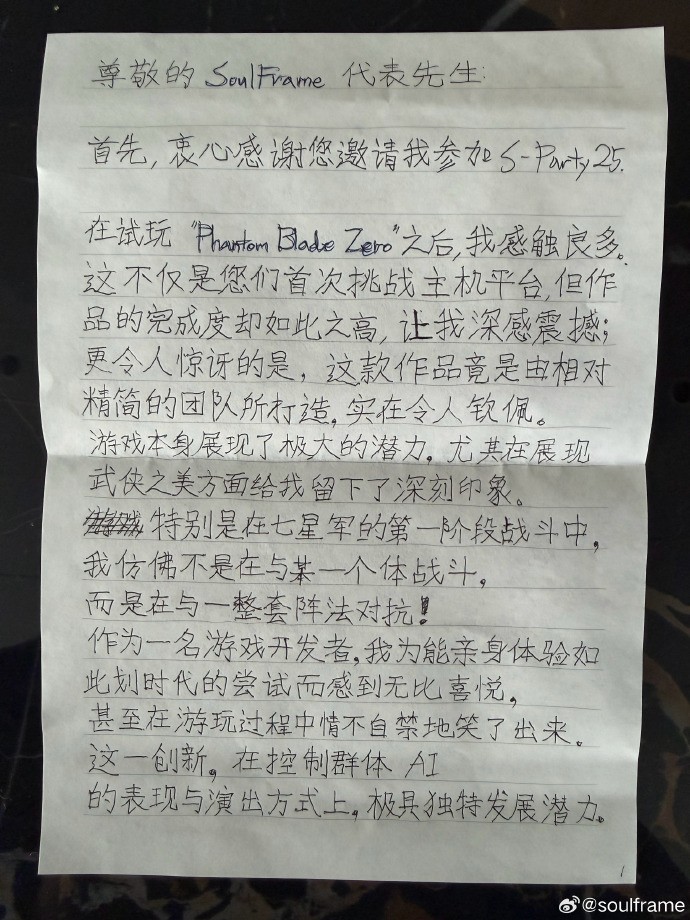 尊敬的 SoulFrame 代表先生:
首先, 衷心感谢您邀请我参加 S-Party 25.
在试玩 "Phantom Blade Zero" 之后, 我感触良多。
这不仅是您们首次挑战主机平台, 但作
品的完成度却如此之高, 让我深感震撼;
更令人惊讶的是, 这款作品竟是由相对
精简的团队所打造, 实在令人钦佩。
游戏本身展现了极大的潜力, 尤其在展现
武侠之美方面给我留下了深刻印象。
特别是在七星军的第一阶段战斗中,
我仿佛不是在与某一个体战斗,
而是在与一整套阵法对抗!
作为一名游戏开发者, 我为能亲身体验如
此划时代的尝试而感到无比喜悦,
甚至在游玩过程中情不自禁地笑了出来。
这一创新, 在控制群体 AI
的表现与演出方式上, 极具独特发展潜力。
1
@soulframe